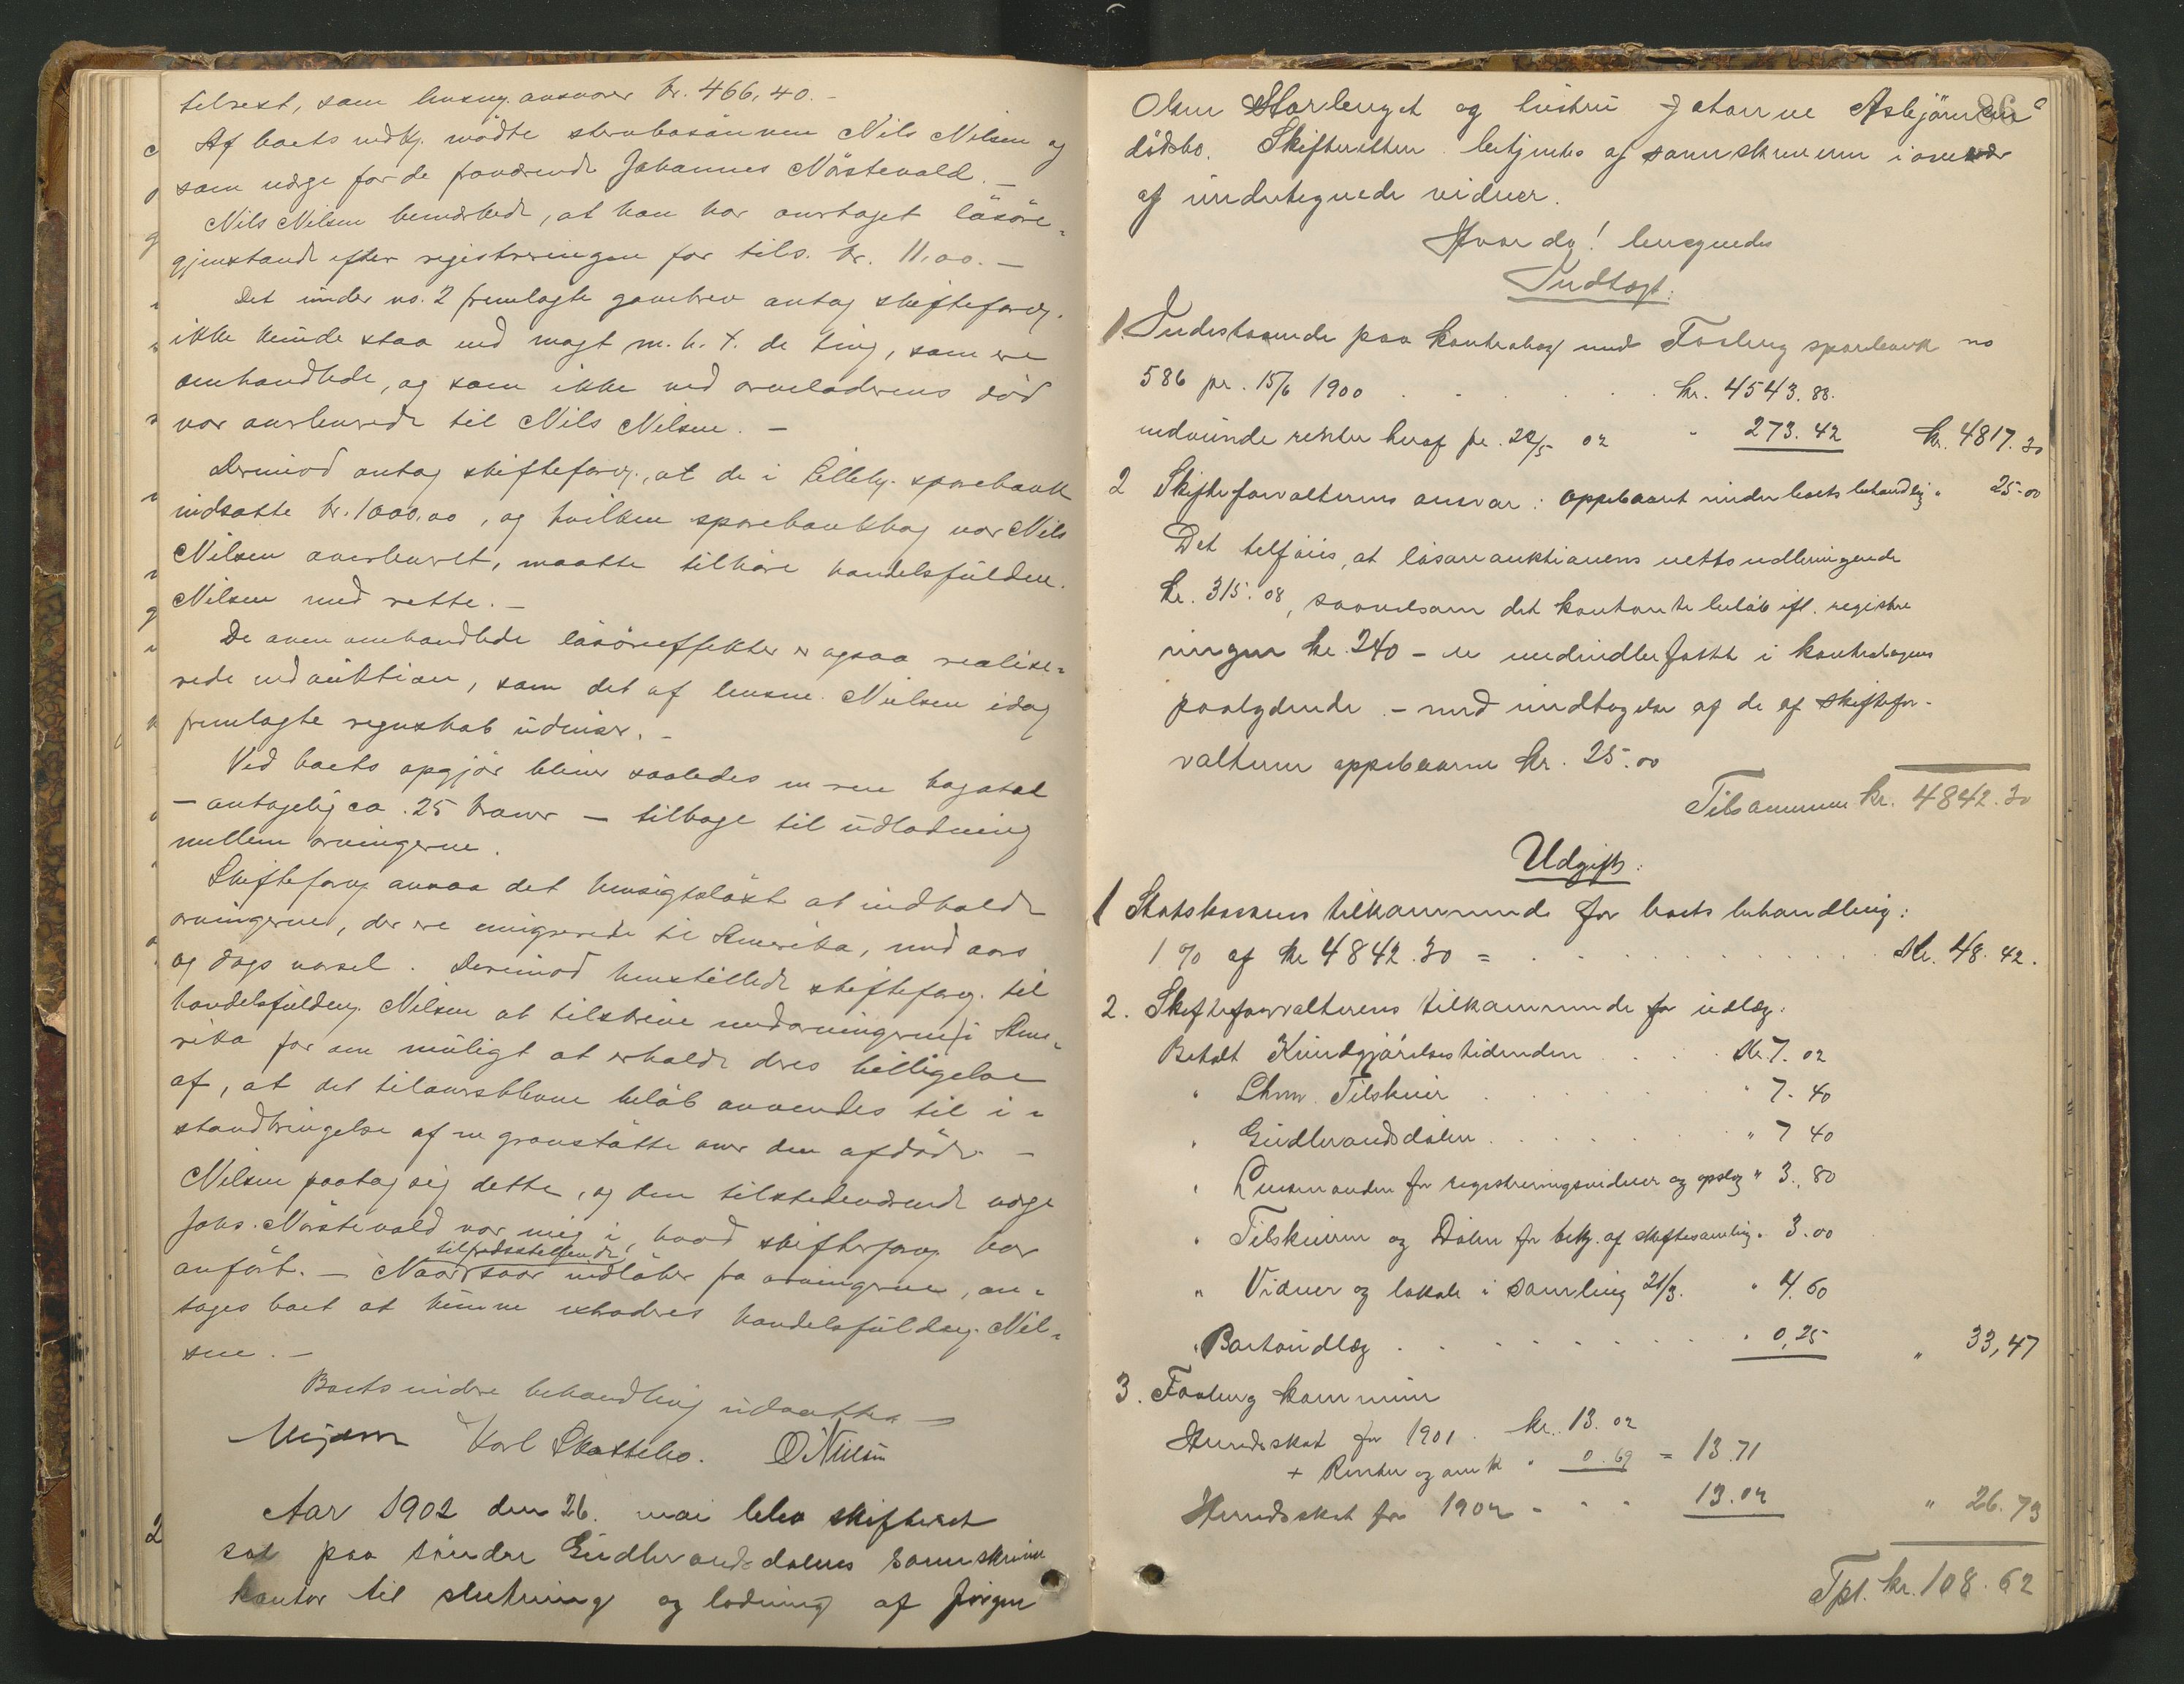 tilrest, som lensm. ansvarer kr. 466,40.-
Af boets vedk. mødte stervbosønnen Nils Nilsen og
som verge for de fraværende Johannes Nöstevold.-
Nils Nilsen bemærkede, at han har overtaget lösöre-
gjenstande efter registreringen for tils. kr. 11.00.-
Det under no. 2 fremlagte gavebrev antog skifteforv.
ikke kunde staa ved magt m. h. t. de ting, som ere
omhandlede, og som ikke ved arveladerens död
var overleveret til Nils Nilsen.-
Derimod antog skifteforv., at de i Lilleh. sparebank
indsatte kr. 1000.00, og hvilken sparebankbog var Nils
Nilsen overleveret, maatte tilhöre handelsfuldm.
Nilsen med rette.-
De oven omhandlede lösöreeffekter er ogsaa realise-
rede ved auktion, som det af lensm. Nielsen idag
fremlagte regnskab udviser.-
Ved boets opgjør bliver saaledes en ren bagatel
- antagelig ca. 25 kroner - tilbage til udlodning
mellem arvingerne.
Skifteforv. ansaa det hensigtslöst at indkalde
arvingerne, der ere emigrerede til Amerika, med aars
og dags varsel. Derimod henstillede skifteforv. til
handelsfuldm. Nilsen at tilskrive medarvingerne i Ame-
rika for om muligt at erholde deres billigelse
af, at det tiloversblevne belöb anvendes til i-
standbringelse af en gravstötte over den afdöde.-
Nilsen paatog sig dette, og den tilstedeværende verge
Johs. Nöstevold var enig i, hvad skifteforv. har
anfört.- Naar tilfredsstillende svar indlöber fra arvingerne, an-
tages boet at kunne extraderes handelsfuldm. Nil-
sen.-
Boets videre behandling udsattes.-
Karl Skattebo. O Nielsen
2 Aar 1902 den 26. mai blev skifteret
sat paa söndre Gudbrandsdalens sorenskriver
kontor til slutning og lodning af Jörgen
86
Olsen Storlenget og hustru Asbjörnsens
dödsbo. Skifteretten betjentes af sorenskriveren i overvær
af undertegnede vidner.
Hvorda! beregnedes
Indtægt:
1. Indestaaende paa kontrabog med Faaberg sparebank no
586 pr. 15/6 1900 . . . . . kr. 4543.88.
medvundne renter heraf pr. 22/5 02 " 273.42 kr. 4817.30
2 Skifteforvalterens ansvar: oppebaaret under boets behandlig " 25.00
Det tilföies, at lösöreauktionens netto udbringende
kr. 315.08, saavelsom det kontante belöb ifl. registre
ringen kr. 240 - er medindbefattet i kontrabogens
paalydende - med undtagelse af de af skiftefor-
valteren oppebaarne kr. 25.00
Tilsammen kr. 4842.30
Udgift:
1 Statskassens tilkommende for boets behandling:
1 % af kr 4842.30 = . . . . . . . . kr. 48.42.
2. Skifteforvalterens tilkommende for udlæg:
Betalt Kundgjörelsestidenden . . . kr. 7.02
" Lhmr. Tilskuer . . . . . " 7.40
" Gudbrandsdölen . . . . . " 7 40
" Lensmanden for registreringsvidner og opslag " 3.80
" Tilskueren og Dölen for bekj. af skiftesamling " 3.00
" Vidner og lokale i samling 21/3. " 4.60
" Portoudlæg . . . . . . . " 0,25 " 33,47
3. Faaberg kommune
Herredsskat for 1901 . kr. 13.02
+ Renter og omk " 0.69 = 13.71
Herredsskat for 1902 - . . . 13.02 " 26.73
Tpt. kr. 108.62